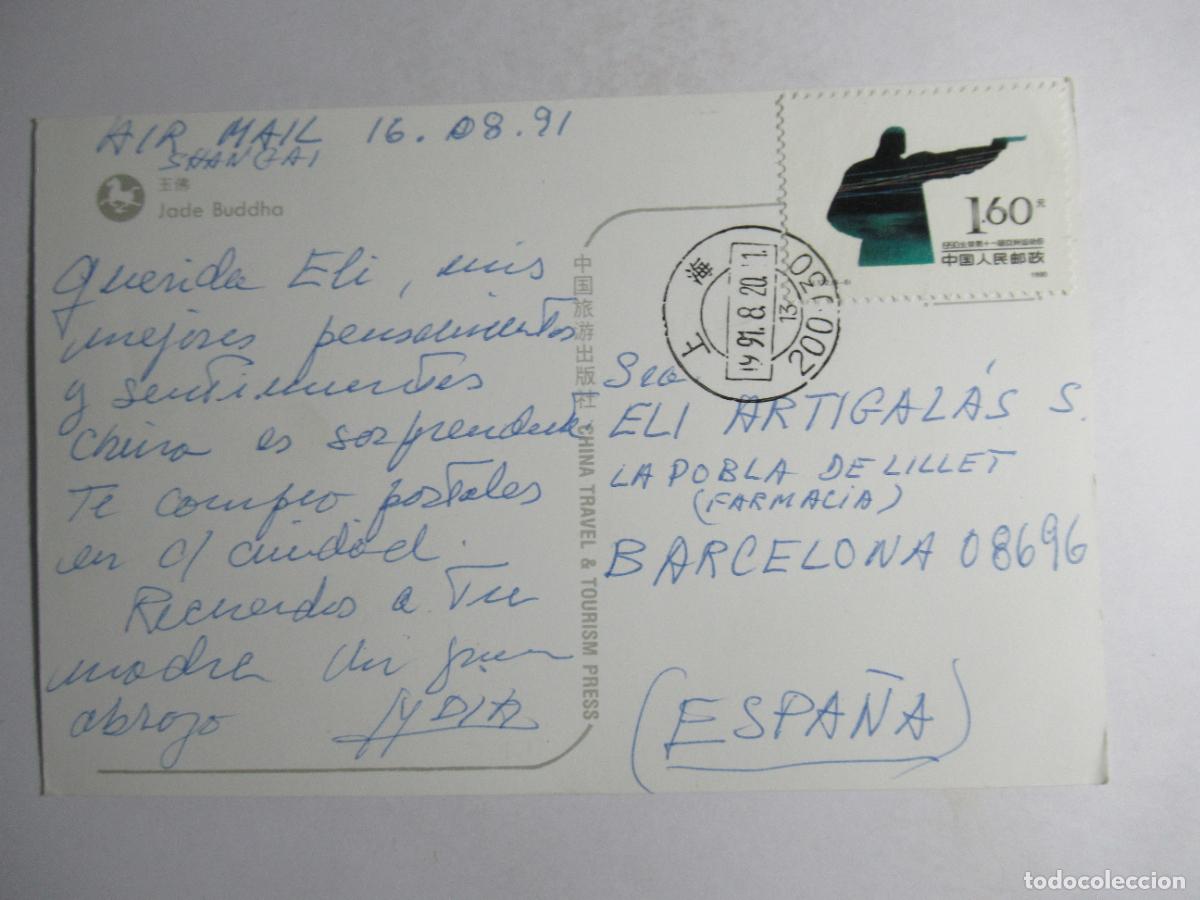 AIR MAIL 16.08.91
SHANGAI
玉佛
Jade Buddha
Querida Eli, mis
mejores pensamientos
y sentimientos
China es sorprendente.
Te compro postales
en c/ ciudad.
Recuerdos a Tu
madre Un gran
abrazo LYDIA
中国旅游出版社 CHINA TRAVEL & TOURISM PRESS
1.60元
1990北京第十一届亚洲运动会
中国人民邮政
1990
上海
1991.8.20
13
200030
Sra
ELI ARTIGALÁS S.
LA POBLA DE LILLET
(FARMACIA)
BARCELONA 08696
(ESPAÑA)
todocoleccion